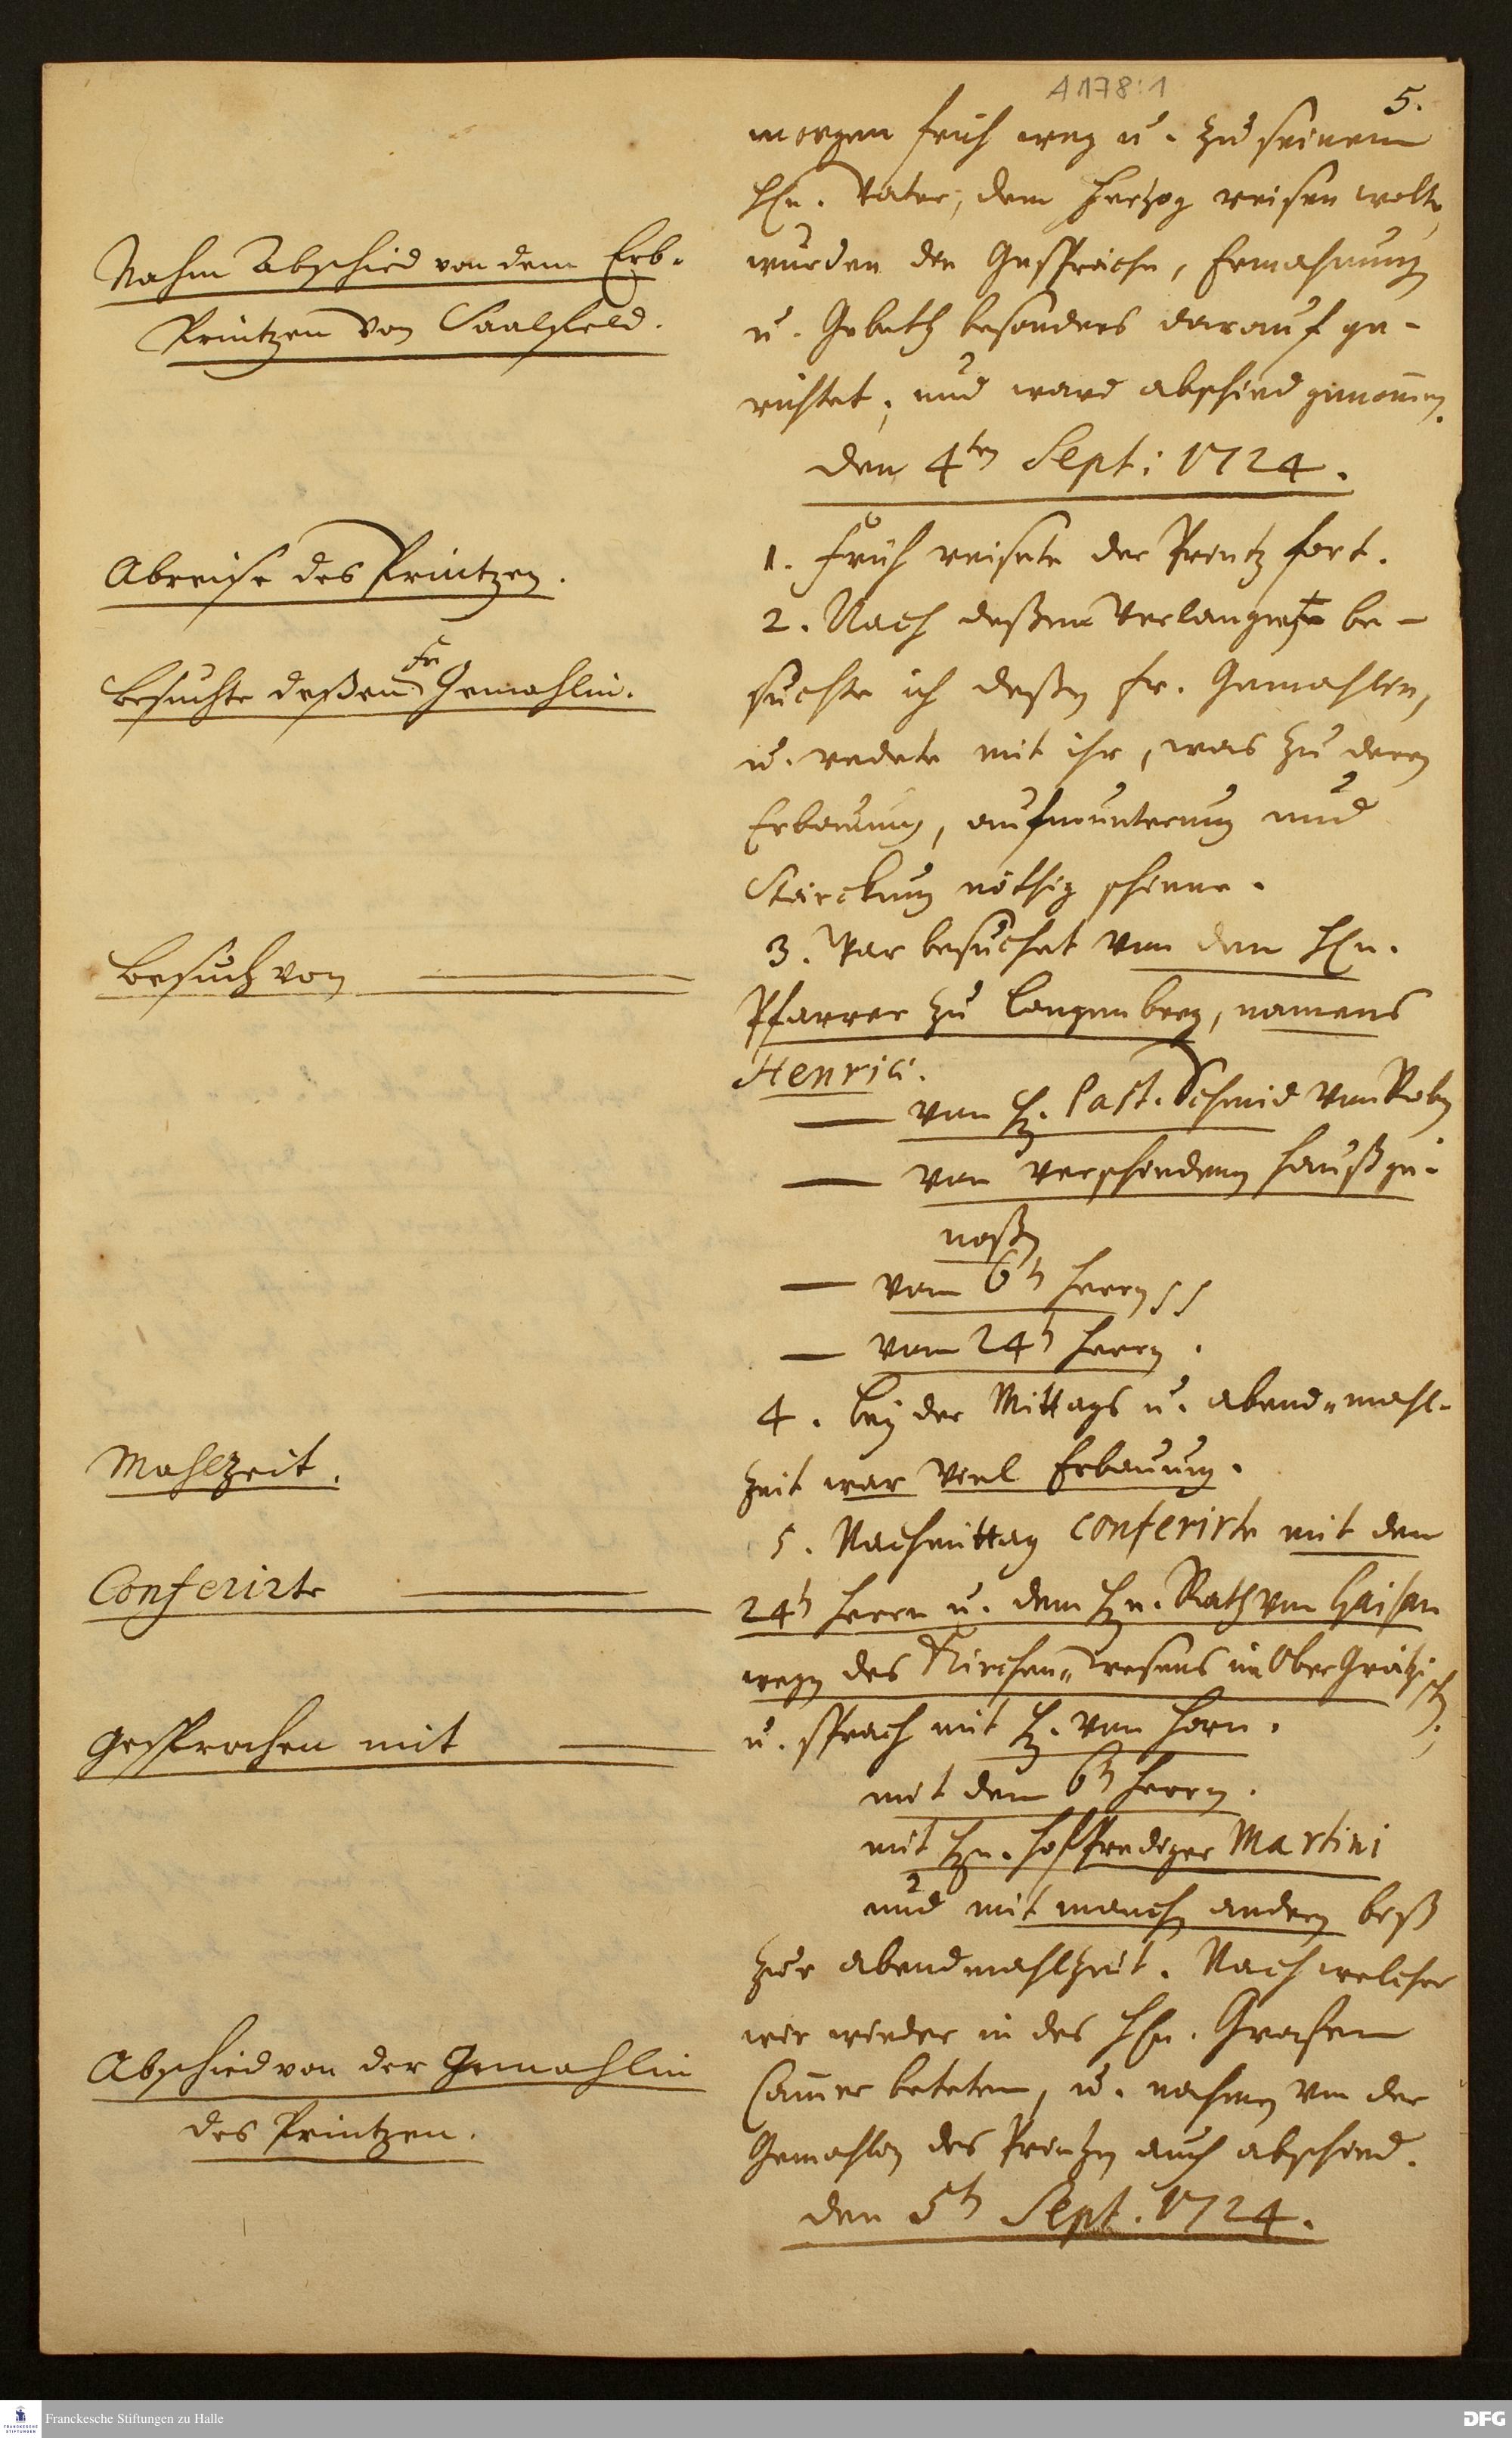 A 178:1
5.
morgen früh weg u. zu seinem
HEn. Vater, dem Hertzog reisen wolte,
Nahm Abschied von dem Erb-
Printzen von Saalfeld.
wurden die Gespräche, Ermahnung
u. Gebeth besonders darauf ge-
richtet, und ward abschied genom̃en.
den 4ten Sept: 1724.
Abreise des Printzen.
1. Früh reisete der Printz fort.
2. Nach deßen Verlangen be-
Besuchte deßen Fr Gemahlin.
suchte ich deßen Fr. Gemahlin,
u. redete mit ihr, was zu deren
Erbauung, aufmunterung und
Stärckung nöthig schiene.
Besuch von
3. War besuchet von dem HEn.
Pfarrer zu Langenberg, namens
Henrici.
— von H. Past. Schmid von
— von verschiedenen Haußge-
noßen
— vom 6ten Herrn
— vom 24ten Herrn.
Mahlzeit.
4. Bey der Mittags u. abend-mahl-
zeit war viel Erbauung.
Conferirte
5. Nachmittag conferirte mit dem
24ten Herrn u. dem Hn. Rath von Geisau
wegen des Kirchen-wesens im Ober Gräitzischen,
gesprochen mit
u. sprach mit H. von Horn.
mit dem 6ten Herrn.
mit Hn. Hoffprediger Martini
und mit manchen andern biß
zur abendmahlzeit. Nach welcher
wir wieder in des HEn. Grafen
Abschied von der Gemahlin
des Printzen.
Cam̃er beteten, u. nahmen von der
Gemahlin des Printzen auch abschied.
den 5ten Sept. 1724.
Franckesche Stiftungen zu Halle
DFG